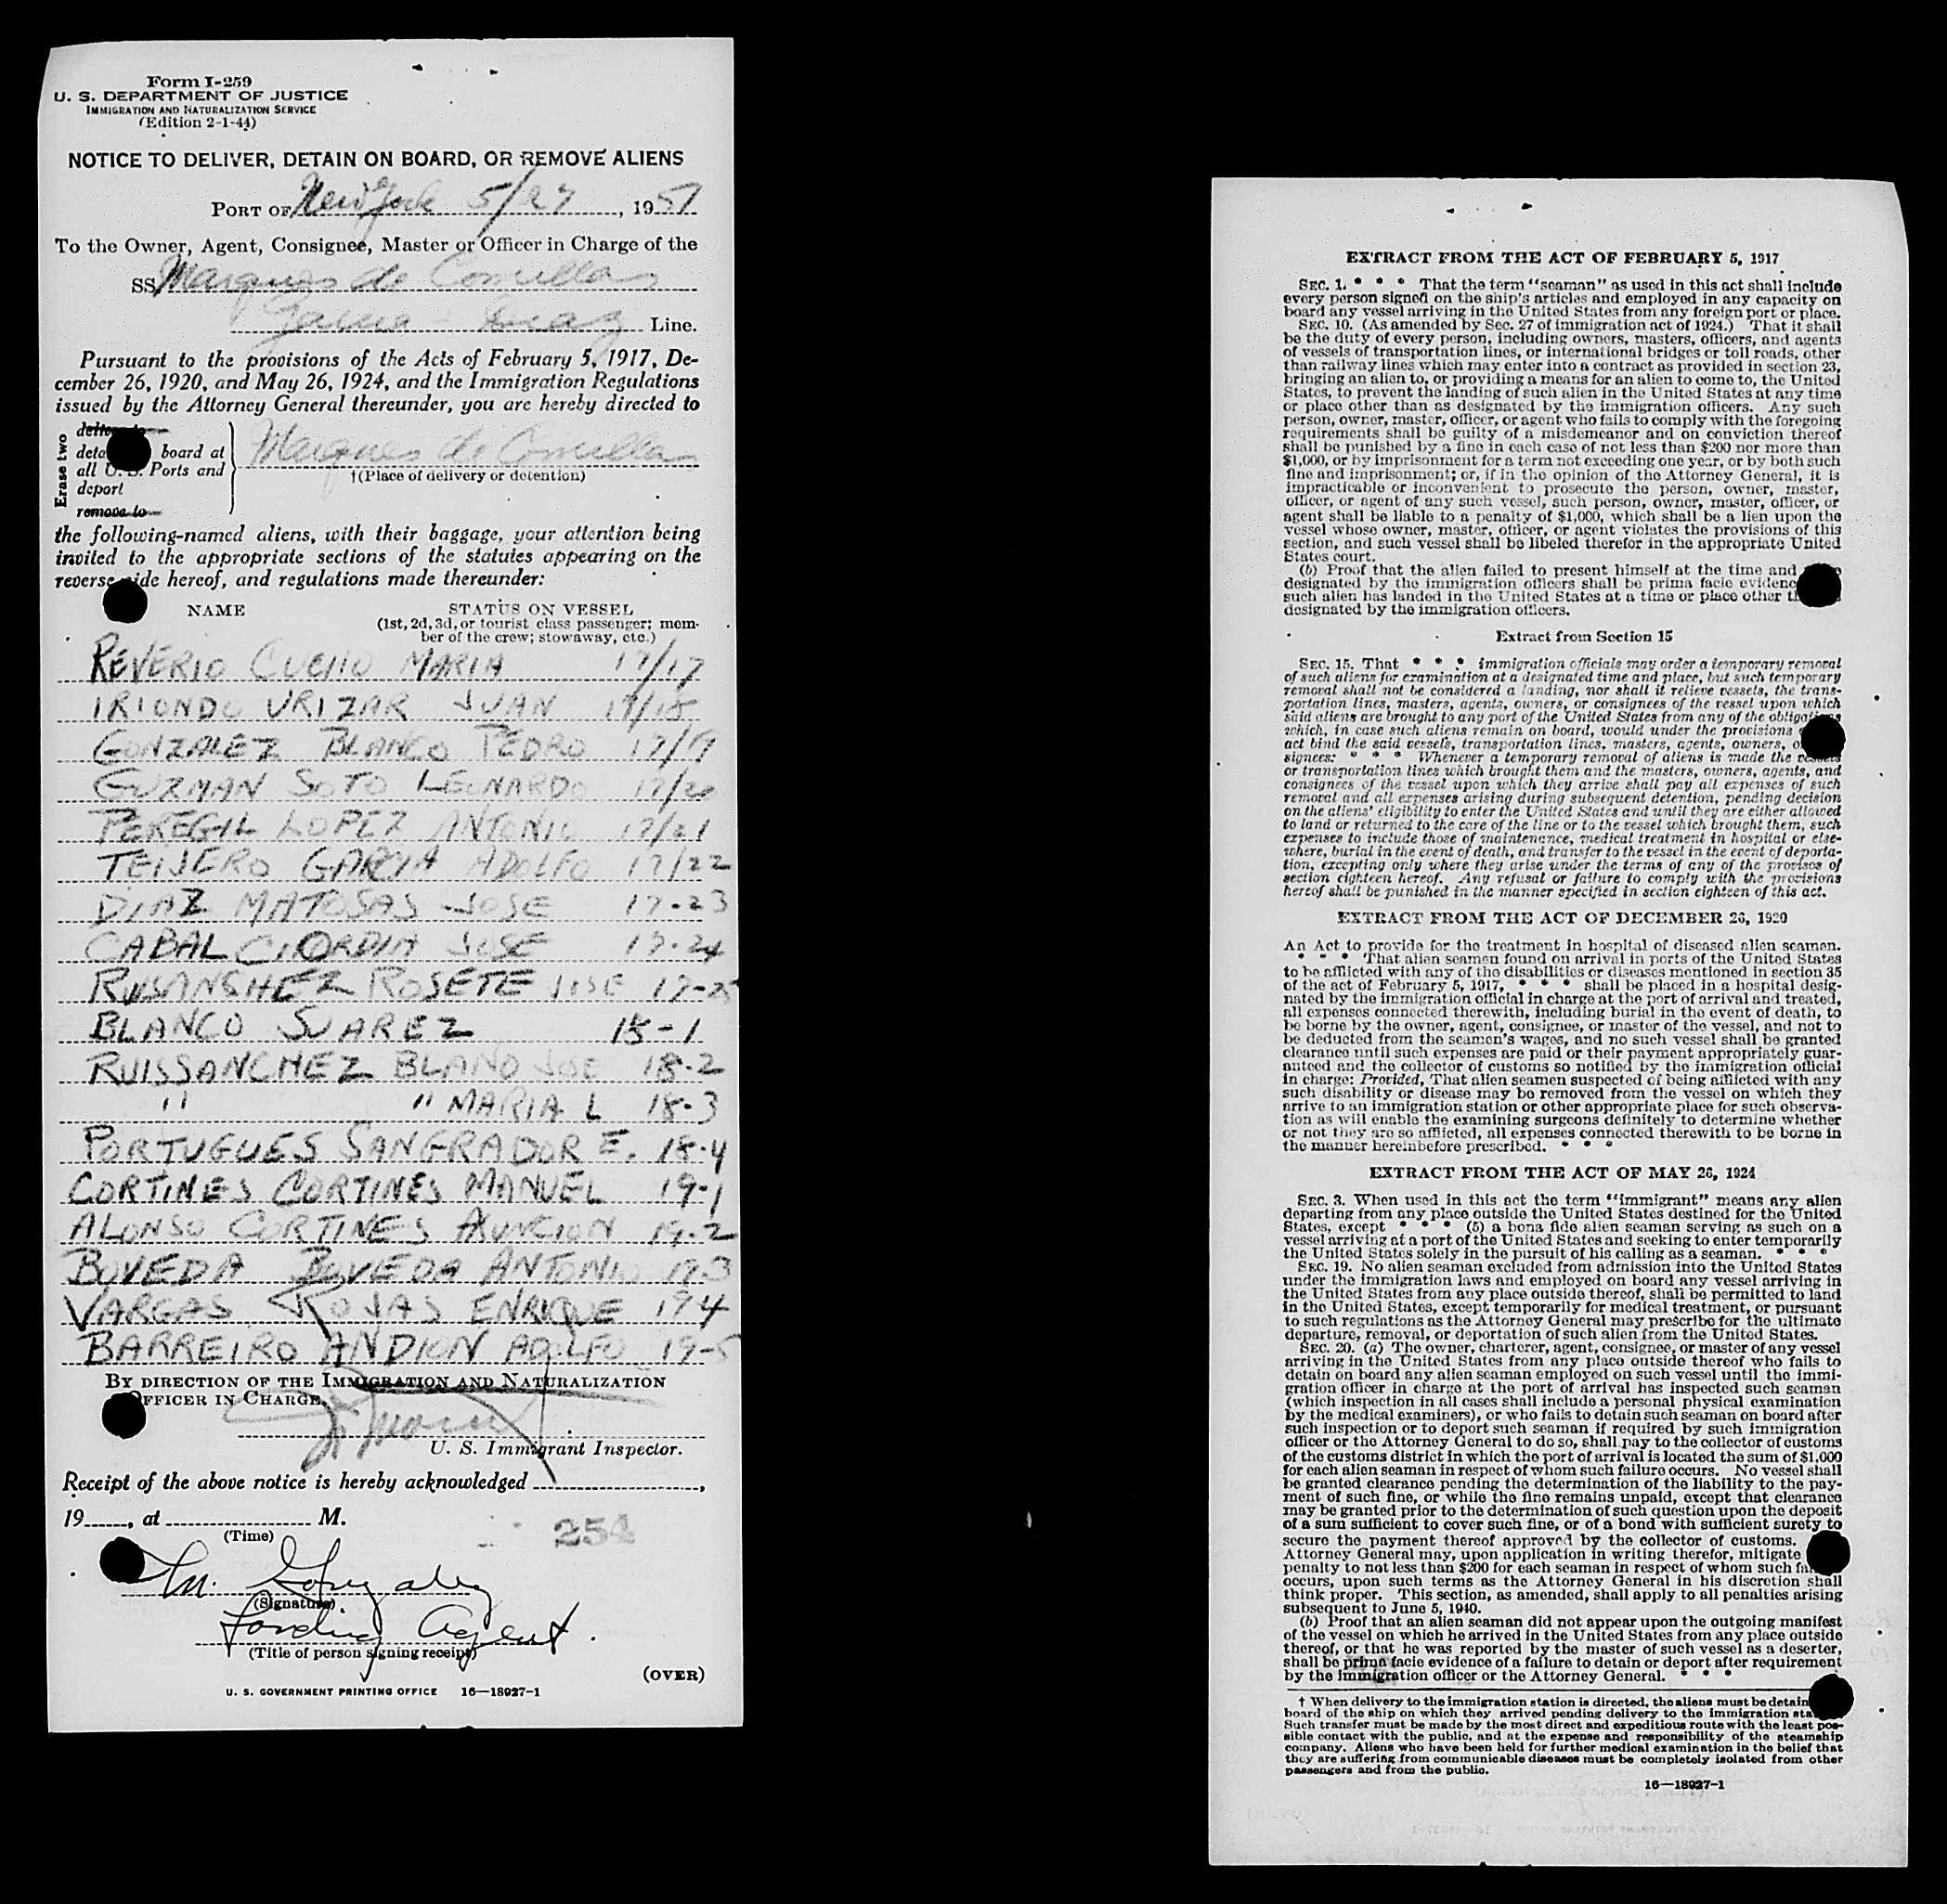 Form I-259
U. S. DEPARTMENT OF JUSTICE
IMMIGRATION AND NATURALIZATION SERVICE
(Edition 2-1-44)
NOTICE TO DELIVER, DETAIN ON BOARD, OR REMOVE ALIENS
PORT OF New York 5/27, 1951
To the Owner, Agent, Consignee, Master or Officer in Charge of the
SS Marques de Comillas
Garcia Diaz Line.
Pursuant to the provisions of the Acts of February 5, 1917, De-
cember 26, 1920, and May 26, 1924, and the Immigration Regulations
issued by the Attorney General thereunder, you are hereby directed to
Erase two
deliver to
board at
all U. S. Ports and
deport
remove to
Marques de Comillas
†(Place of delivery or detention)
the following-named aliens, with their baggage, your attention being
invited to the appropriate sections of the statutes appearing on the
reverse side hereof, and regulations made thereunder:
NAME STATUS ON VESSEL
(1st, 2d, 3d, or tourist class passenger; mem-
ber of the crew; stowaway, etc.)
REVERIO CUCHO MARIA 17/17
IRIONDO URIZAR JUAN 17/18
GONZALEZ BLANCO PEDRO 17/19
GUZMAN SOTO LEONARDO 17/20
PEREGIL LOPEZ ANTONIO 17/21
TEIJERO GARCIA ADOLFO 17/22
DIAZ MATOSAS JOSE 17-23
CABAL CIORDIA JOSE 17-24
RUISANSHEZ ROSETE JOSE 17-25
BLANCO SUAREZ 18-1
RUISSANCHEZ BLANO JOSE 18-2
" " MARIA L 18-3
PORTUGUES SANGRADOR E. 18-4
CORTINES CORTINES MANUEL 19-1
ALONSO CORTINES ASUNCION 19-2
BOVEDA BOVEDA ANTONIO 19-3
VARGAS ROJAS ENRIQUE 19-4
BARREIRO ANDION ADOLFO 19-5
BY DIRECTION OF THE IMMIGRATION AND NATURALIZATION
OFFICER IN CHARGE.
U. S. Immigrant Inspector.
Receipt of the above notice is hereby acknowledged ,
19 , at M.
(Time)
254
M. Gonzalez
(Signature)
Landing Agent.
(Title of person signing receipt)
(OVER)
U. S. GOVERNMENT PRINTING OFFICE 16—18927-1
EXTRACT FROM THE ACT OF FEBRUARY 5, 1917
SEC. 1. * * * That the term "seaman" as used in this act shall include
every person signed on the ship's articles and employed in any capacity on
board any vessel arriving in the United States from any foreign port or place.
SEC. 10. (As amended by Sec. 27 of immigration act of 1924.) That it shall
be the duty of every person, including owners, masters, officers, and agents
of vessels of transportation lines, or international bridges or toll roads, other
than railway lines which may enter into a contract as provided in section 23,
bringing an alien to, or providing a means for an alien to come to, the United
States, to prevent the landing of such alien in the United States at any time
or place other than as designated by the immigration officers. Any such
person, owner, master, officer, or agent who fails to comply with the foregoing
requirements shall be guilty of a misdemeanor and on conviction thereof
shall be punished by a fine in each case of not less than $200 nor more than
$1,000, or by imprisonment for a term not exceeding one year, or by both such
fine and imprisonment; or, if in the opinion of the Attorney General, it is
impracticable or inconvenient to prosecute the person, owner, master,
officer, or agent of any such vessel, such person, owner, master, officer, or
agent shall be liable to a penalty of $1,000, which shall be a lien upon the
vessel whose owner, master, officer, or agent violates the provisions of this
section, and such vessel shall be libeled therefor in the appropriate United
States court.
(b) Proof that the alien failed to present himself at the time and
designated by the immigration officers shall be prima facie evidence
such alien has landed in the United States at a time or place other
designated by the immigration officers.
Extract from Section 15
SEC. 15. That * * * immigration officials may order a temporary removal
of such aliens for examination at a designated time and place, but such temporary
removal shall not be considered a landing, nor shall it relieve vessels, the trans-
portation lines, masters, agents, owners, or consignees of the vessel upon which
said aliens are brought to any port of the United States from any of the obligations
which, in case such aliens remain on board, would under the provisions
act bind the said vessels, transportation lines, masters, agents, owners,
signees: * * * Whenever a temporary removal of aliens is made the vessels
or transportation lines which brought them and the masters, owners, agents, and
consignees of the vessel upon which they arrive shall pay all expenses of such
removal and all expenses arising during subsequent detention, pending decision
on the aliens' eligibility to enter the United States and until they are either allowed
to land or returned to the care of the line or to the vessel which brought them, such
expenses to include those of maintenance, medical treatment in hospital or else-
where, burial in the event of death, and transfer to the vessel in the event of deporta-
tion, excepting only where they arise under the terms of any of the provisos of
section eighteen hereof. Any refusal or failure to comply with the provisions
hereof shall be punished in the manner specified in section eighteen of this act.
EXTRACT FROM THE ACT OF DECEMBER 26, 1920
An Act to provide for the treatment in hospital of diseased alien seamen.
* * * That alien seamen found on arrival in ports of the United States
to be afflicted with any of the disabilities or diseases mentioned in section 35
of the act of February 5, 1917, * * * shall be placed in a hospital desig-
nated by the immigration official in charge at the port of arrival and treated,
all expenses connected therewith, including burial in the event of death, to
be borne by the owner, agent, consignee, or master of the vessel, and not to
be deducted from the seamen's wages, and no such vessel shall be granted
clearance until such expenses are paid or their payment appropriately guar-
anteed and the collector of customs so notified by the immigration official
in charge: Provided, That alien seamen suspected of being afflicted with any
such disability or disease may be removed from the vessel on which they
arrive to an immigration station or other appropriate place for such observa-
tion as will enable the examining surgeons definitely to determine whether
or not they are so afflicted, all expenses connected therewith to be borne in
the manner hereinbefore prescribed. * * *
EXTRACT FROM THE ACT OF MAY 26, 1924
SEC. 3. When used in this act the term "immigrant" means any alien
departing from any place outside the United States destined for the United
States, except * * * (5) a bona fide alien seaman serving as such on a
vessel arriving at a port of the United States and seeking to enter temporarily
the United States solely in the pursuit of his calling as a seaman. * * *
SEC. 19. No alien seaman excluded from admission into the United States
under the immigration laws and employed on board any vessel arriving in
the United States from any place outside thereof, shall be permitted to land
in the United States, except temporarily for medical treatment, or pursuant
to such regulations as the Attorney General may prescribe for the ultimate
departure, removal, or deportation of such alien from the United States.
SEC. 20. (a) The owner, charterer, agent, consignee, or master of any vessel
arriving in the United States from any place outside thereof who fails to
detain on board any alien seaman employed on such vessel until the immi-
gration officer in charge at the port of arrival has inspected such seaman
(which inspection in all cases shall include a personal physical examination
by the medical examiners), or who fails to detain such seaman on board after
such inspection or to deport such seaman if required by such immigration
officer or the Attorney General to do so, shall pay to the collector of customs
of the customs district in which the port of arrival is located the sum of $1,000
for each alien seaman in respect of whom such failure occurs. No vessel shall
be granted clearance pending the determination of the liability to the pay-
ment of such fine, or while the fine remains unpaid, except that clearance
may be granted prior to the determination of such question upon the deposit
of a sum sufficient to cover such fine, or of a bond with sufficient surety to
secure the payment thereof approved by the collector of customs.
Attorney General may, upon application in writing therefor, mitigate
penalty to not less than $200 for each seaman in respect of whom such
occurs, upon such terms as the Attorney General in his discretion shall
think proper. This section, as amended, shall apply to all penalties arising
subsequent to June 5, 1940.
(b) Proof that an alien seaman did not appear upon the outgoing manifest
of the vessel on which he arrived in the United States from any place outside
thereof, or that he was reported by the master of such vessel as a deserter,
shall be prima facie evidence of a failure to detain or deport after requirement
by the immigration officer or the Attorney General. * * *
† When delivery to the immigration station is directed, the aliens must be detain
board of the ship on which they arrived pending delivery to the immigration
Such transfer must be made by the most direct and expeditious route with the least pos-
sible contact with the public, and at the expense and responsibility of the steamship
company. Aliens who have been held for further medical examination in the belief that
they are suffering from communicable diseases must be completely isolated from other
passengers and from the public.
16—18927-1